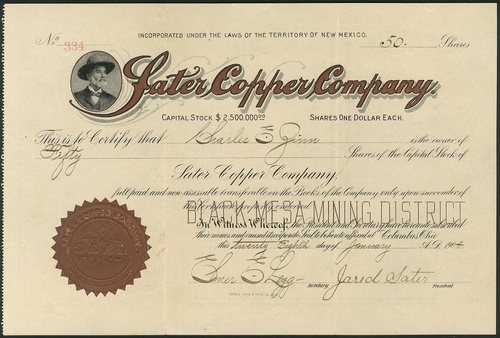 INCORPORATED UNDER THE LAWS OF THE TERRITORY OF NEW MEXICO.
No. 334 50 Shares
Sater Copper Company.
CAPITAL STOCK $2.500.000.00 SHARES ONE DOLLAR EACH.
This is to Certify that Charles E Zinn is the owner of
Fifty Shares of the Capital Stock of
Sater Copper Company,
full paid and non-assessable transferable on the Books of the Company only upon surrender of
BLACK MESA MINING DISTRICT
In Witness Whereof, the President and Secretary have hereunto subscribed
their names and caused the corporate Seal to be hereto affixed at Columbus Ohio
this Twenty Eighth day of January A.D. 1904
Secretary Jared Sater President.